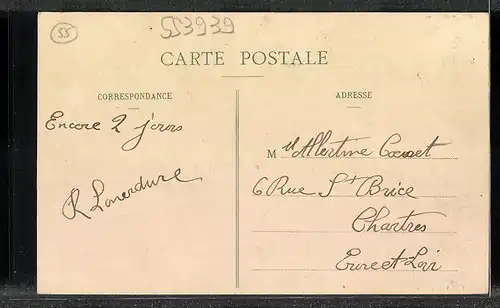 55
553939
CARTE POSTALE
CORRESPONDANCE
ADRESSE
Encore 2 jours
Mell Albertine
6 Rue St Brice
Chartres
Eure et Loir
R